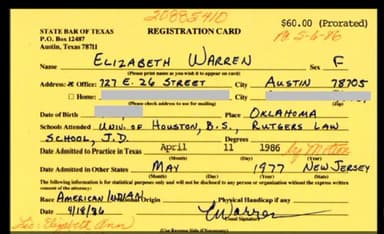 20885410
STATE BAR OF TEXAS REGISTRATION CARD $60.00 (Prorated)
P.O. Box 12487 Pd 5-6-86
Austin, Texas 78711
Name ELIZABETH WARREN Sex F
(Please print name as you wish it to appear on card)
Address: Office: 727 E. 26 STREET City AUSTIN 78705
Home: City
(Please check address to use for mailing)
Date of Birth Place OKLAHOMA
Schools Attended UNIV. OF HOUSTON, B.S., RUTGERS LAW
SCHOOL, J.D. Degrees
Date Admitted to Practice in Texas April 11 1986 by Motion
(Month) (Day) (Year)
Date Admitted in Other States MAY 1977 NEW JERSEY
(Month) (Day) (Year) (State)
The following information is for statistical purposes only and will not be disclosed to any person or organization without the express written
consent of the attorney:
Race AMERICAN INDIAN Origin Physical Handicap if any
Date 4/18/86 EWarren
(Usual Signature)
Elizabeth Ann
(Use Reverse Side if Necessary)